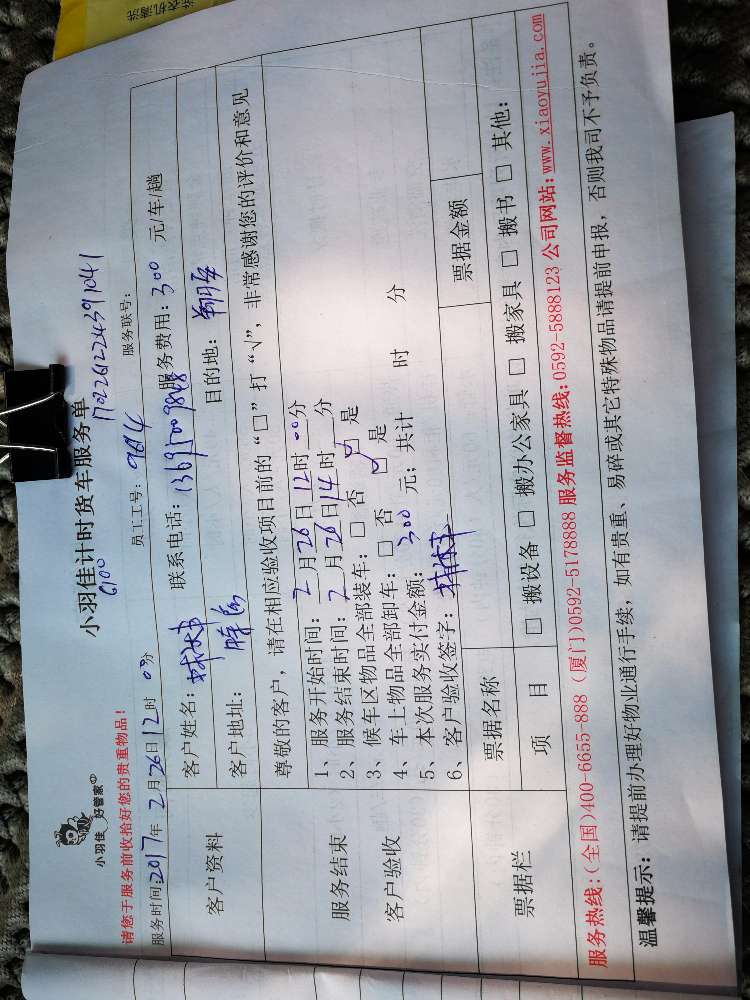 小羽佳 好管家
小羽佳计时货车服务单
6100
1702261224391041
请您于服务前收拾好您的贵重物品!
服务时间:2017年2月26日12时00分 员工工号: 9614 服务联号:
客户资料
客户姓名: 联系电话: 服务费用: 300 元/车/趟
客户地址: 目的地:
尊敬的客户,请在相应验收项目前的“□”打“√”,非常感谢您的评价和意见
服务结束
客户验收
1、服务开始时间: 2月26日12时00分
2、服务结束时间: 2月26日14时 分
3、候车区物品全部装车: □ 否 ☑ 是
4、车上物品全部卸车: □ 否 ☑ 是
5、本次服务实付金额: 300 元; 共计 时 分
6、客户验收签字:
票据栏
票据名称 票据金额
项 目 □ 搬设备 □ 搬办公家具 □ 搬家具 □ 搬书 □ 其他:
服务热线:(全国)400-6655-888 (厦门)0592-5178888 服务监督热线:0592-5888123 公司网站:www.xiaoyujia.com
温馨提示: 请提前办理好物业通行手续,如有贵重、易碎或其它特殊物品请提前申报,否则我司不予负责。